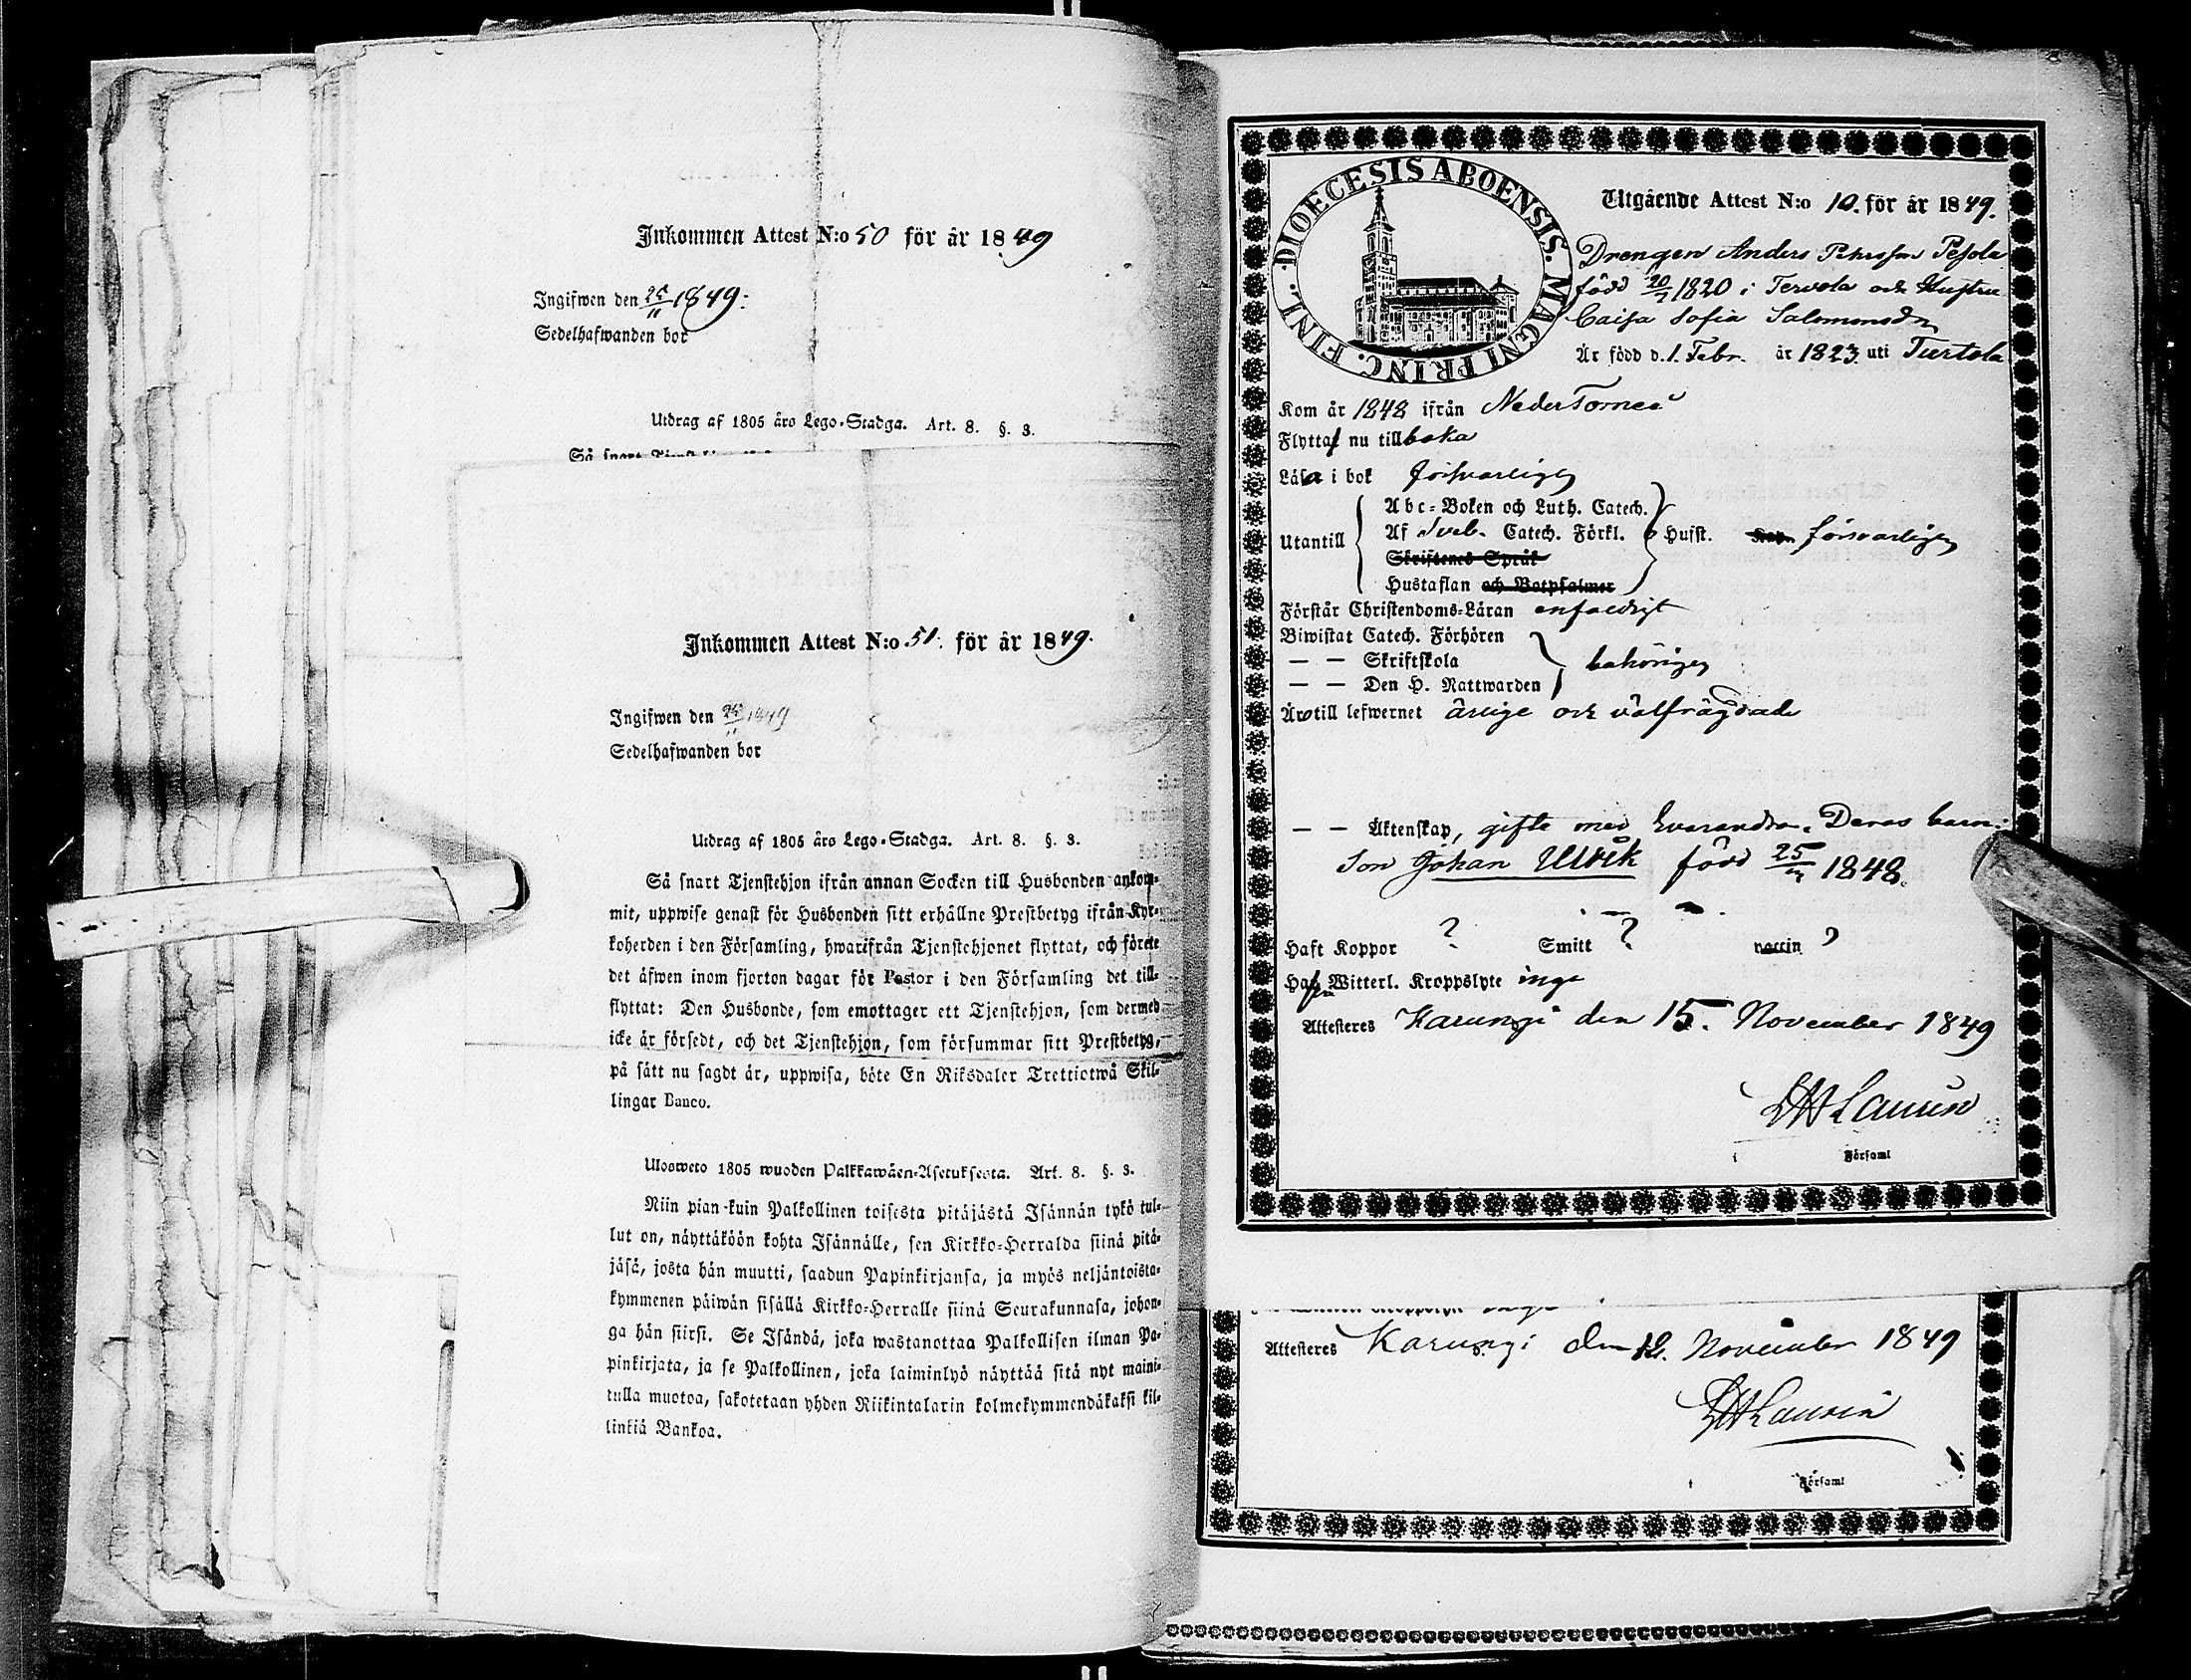 Inkommen Attest N:o 50 för år 1849
Ingifwen den 25/11 1849.
Sedelhafwanden bor
Utdrag af 1805 års Lego-Stadga. Art. 8. §. 3.
Inkommen Attest N:o 51. för år 1849.
Ingifwen den 25/11 1849
Sedelhafwanden bor
Utdrag af 1805 års Lego-Stadga. Art. 8. §. 3.
Så snart Tjenstehjon ifrån annan Socken till Husbonden ankom-
mit, uppwise genast för Husbonden sitt erhållne Prestbetyg ifrån Kyr-
koherden i den Församling, hwarifrån Tjenstehjonet flyttat, och förete
det äfwen inom fjorton dagar för Pastor i den Församling det till-
flyttat: Den Husbonde, som emottager ett Tjenstehjon, som dermed
icke är försedt, och det Tjenstehjon, som försummar sitt Prestbetyg,
på sätt nu sagdt är, uppwisa, böte En Riksdaler Trettiotwå Skil-
lingar Banco.
Ulosweto 1805 wuoden Palkkawäen-Asetuksesta. Art. 8. §. 3.
Niin pian kuin Palkollinen toisesta pitäjästä Isännän tykö tul-
lut on, näyttäköön kohta Isännälle, sen Kirkko-Herralda siinä pitä-
jäsä, josta hän muutti, saadun Papinkirjansa, ja myös neljäntoista-
kymmenen päiwän sisällä Kirkko-Herralle siinä Seurakunnasa, johon-
ga hän siirsi. Se Isändä, joka wastanottaa Palkollisen ilman Pa-
pinkirjata, ja se Palkollinen, joka laiminlyö näyttää sitä nyt maini-
tulla muotoa, sakotetaan yhden Riikintalarin kolmekymmendäkaksi kil-
linkiä Bankoa.
DIOECESIS ABOENSIS. MAGNI PRINC. FINL.
Utgående Attest N:o 10. för år 1849.
Drengen Anders Pehrsson Pesola
född 20/7 1820 i Tervola och Hustru
Caisa Sofia Salomonsdr
Är född d. 1. Febr. år 1823 uti Turtola
Kom år 1848 ifrån NederTorneå
Flytta nu tillbaka
Läsa i bok försvarligen
Abc-Boken och Luth. Catech.
Utantill Af Sveb. Catech. Förkl. Hjst. försvarligen
Skriftenes Språk
Hustaflan och Botpsalmer
Förstår Christendoms-Läran enfaldigt
Biwistat Catech. Förhören
— — Skriftskola behörigen
— — Den H. Nattwarden
Äro till lefwernet ärlige och välfrägdade
— — Äktenskap, gifte med hvarandra. Deras barn:
Son Johan Ulrik född 25/ 1848.
Haft Koppor ? Smitt ? naccin ?
Hafva Witterl. Kroppslyte inga
Attesteres Karungi den 15. November 1849
Församl
Attesteres Karungi den 12. November 1849
Församl